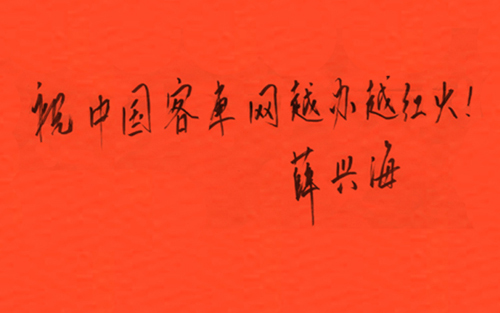 祝中国客車网越办越红火!
薛兴海